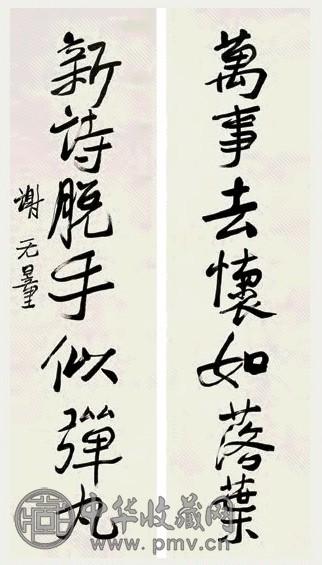 萬事去懷如落葉
新詩脫手似彈丸
謝无量
中华收藏网
www.pmv.cn